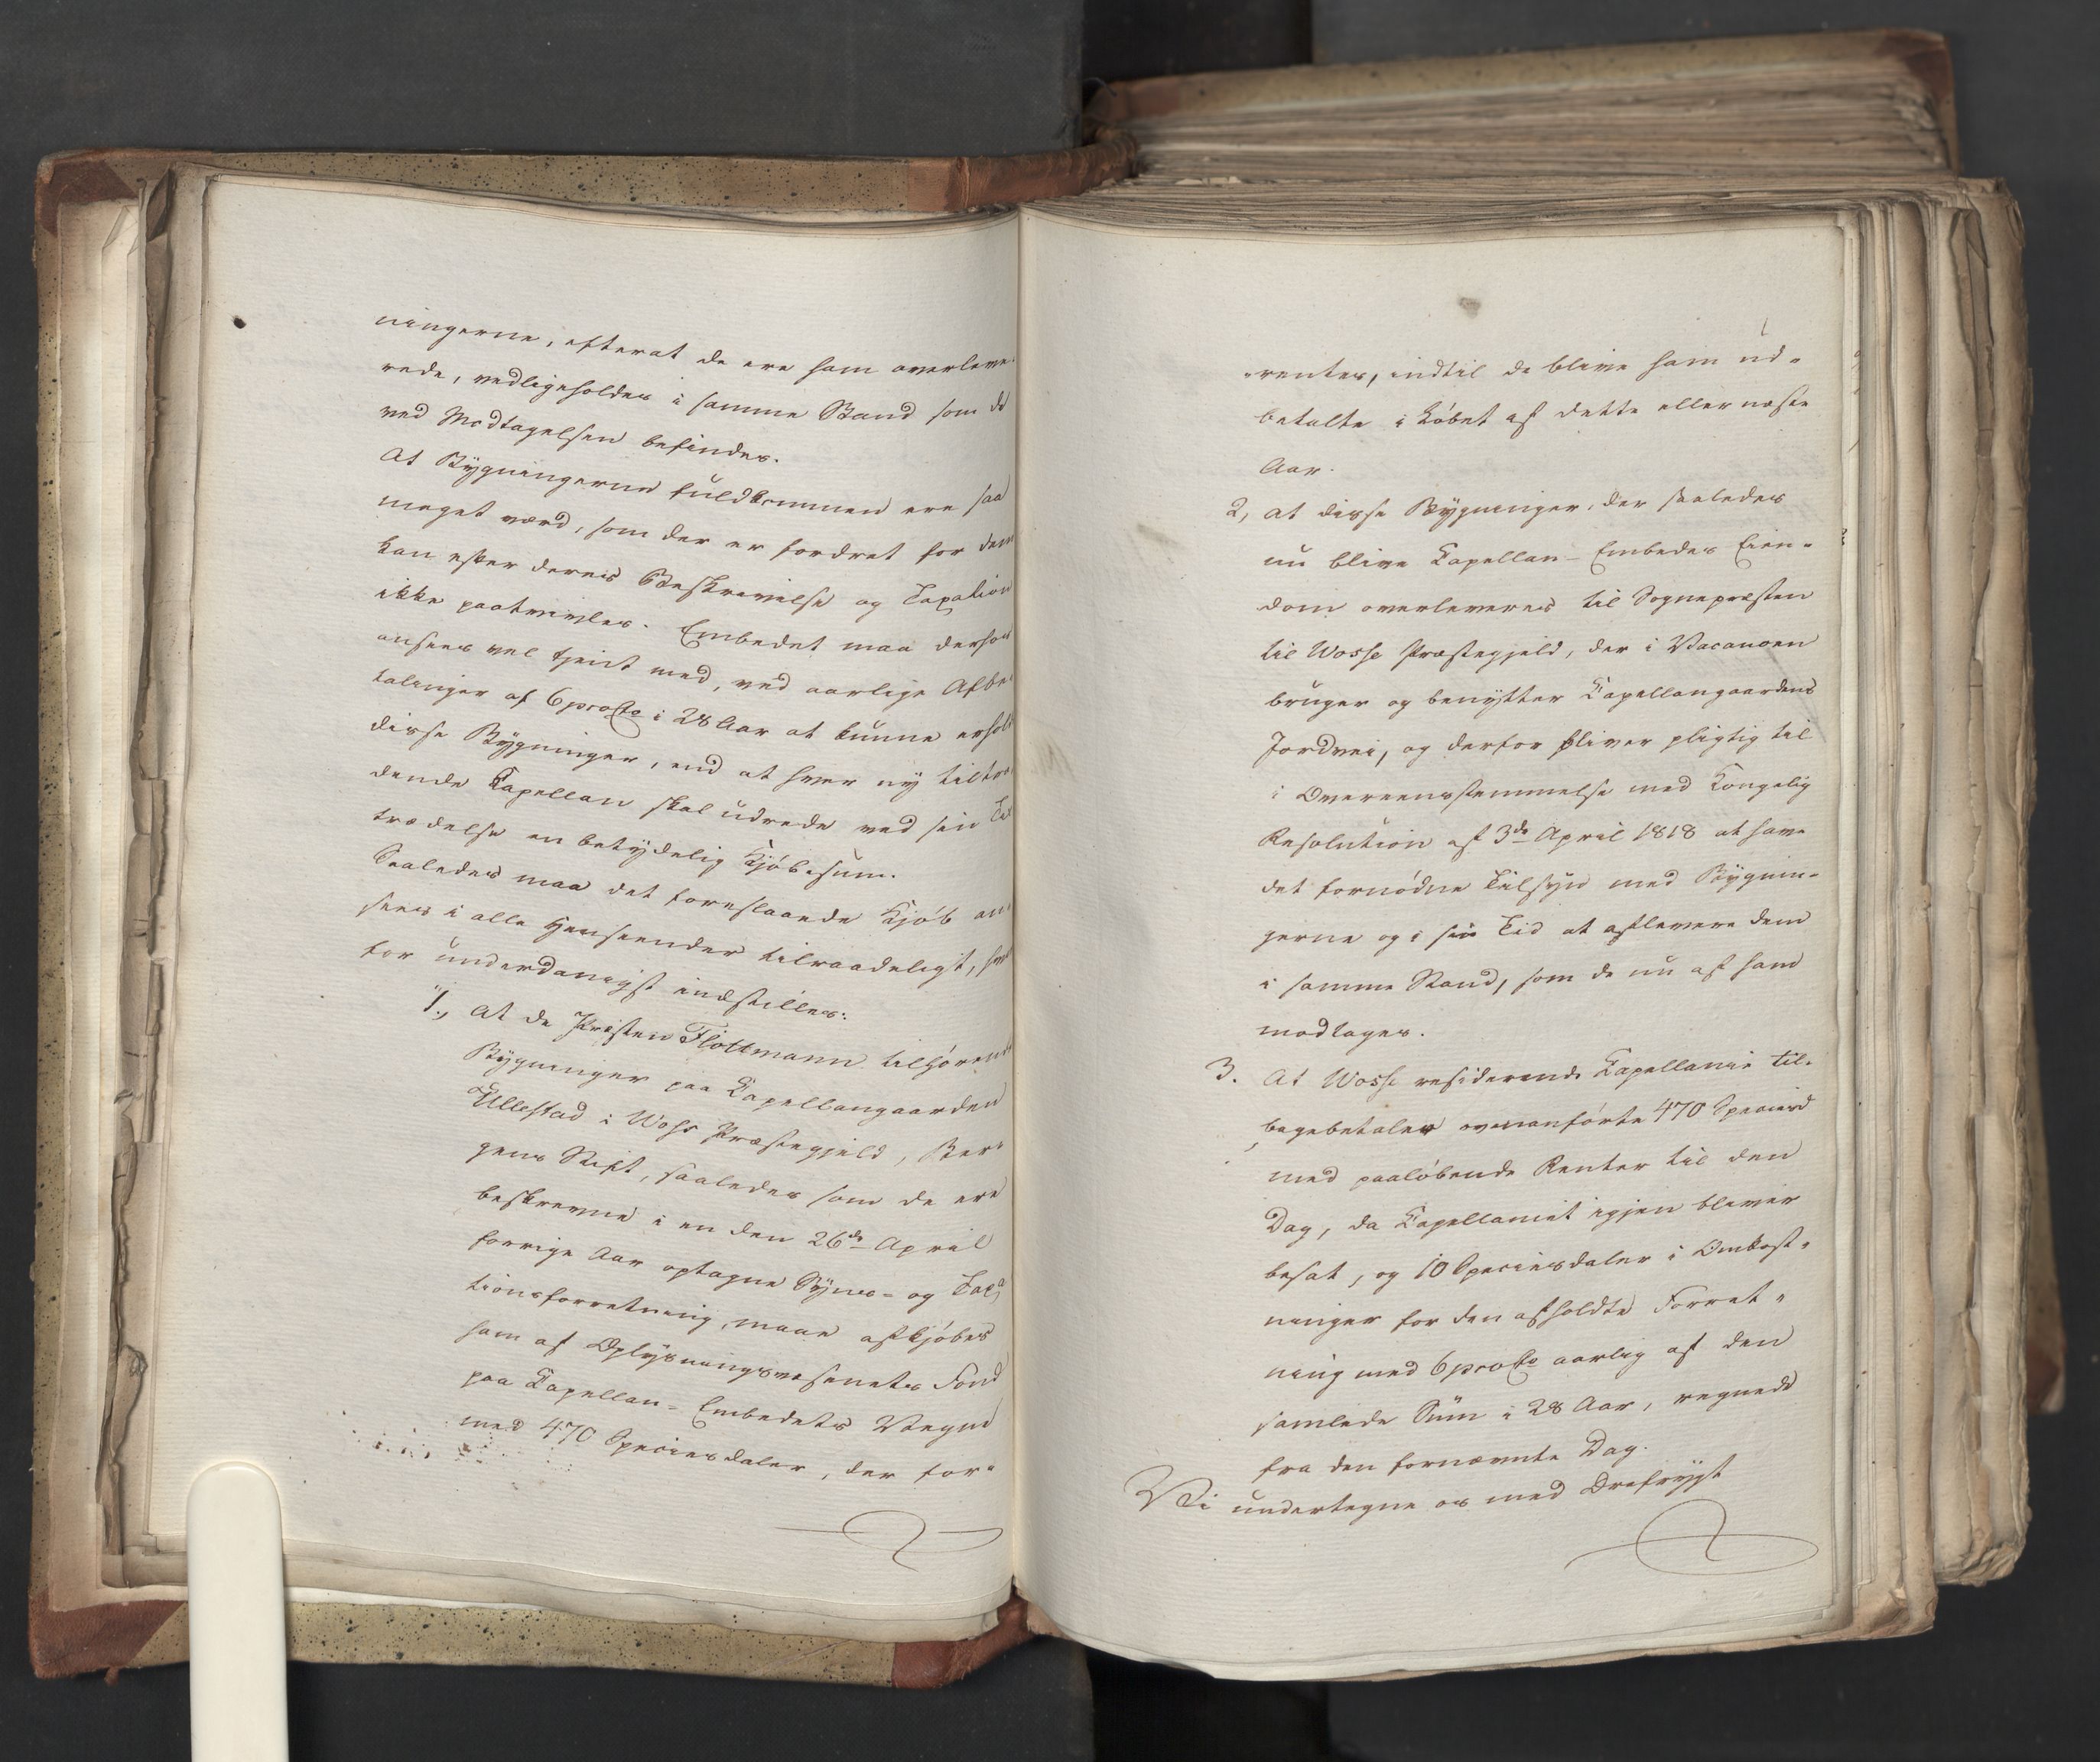 ningerne, efterat de ere ham overleve-
rede, vedligeholdes i samme Stand som de
ved Modtagelsen befindes.
At Bygningerne fuldkommen ere saa
meget værd, som der er fordret for dem
kan efter deres Beskrivelse og Taxation
ikke paatvivles. Embedet maa derfor
ansees vel tjent med, ved aarlige Afbe-
talinger af 6 proCto i 28 Aar at kunne erhol
disse Bygninger, end at hver ny tiltræ-
dende Capellan skal udrede ved sin Til
trædelse en betydelig Kjöbesum.
Saaledes maa det foreslaaede Kjöb an-
sees i alle Henseender tilraadeligt, hvor
for underdanigst indstilles:
"1., At de Præsten Flottmann tilhörende
Bygninger paa Capellangaarden
Ullestad i Woss Præstegjeld, Ber-
gens Stift, saaledes som de ere
beskrevne i en den 26de April
forrige Aar optagne Syns- og Taxa
tionsforretning, maae afkjöbes
ham af Oplysningsvæsenets Fond
paa Capellan-Embedets Vegne
med 470 Speciesdaler, der for-
-rentes, indtil de blive ham ud-
betalte i Löbet af dette eller næste
Aar.
2, At disse Bygninger, der saaledes
nu blive Capellan-Embedes Eien-
dom overleveres til Sognepræsten
til Wosse Præstegjeld, der i Vacancen
bruger og benytter Capellangaardens
Jordvei, og derfor bliver pligtig til
i Overeensstemmelse med Kongelig
Resolution af 3de April 1818 at have
det fornödne Tilsyn med Bygnin-
gerne og i sin Tid at aflevere dem
i samme Stand, som de nu af ham
modtages.
3. At Wosse residerende Capellanie til-
bagebetaler ovenanförte 470 Speciesd
med paalöbende Renter til den
Dag, da Capellaniet igjen bliver
besat, og 10 Speciesdaler i Omkost-
ninger for den afholdte Forret-
ning med 6 proCto aarlig af den
samlede Sum i 28 Aar, regnede
fra den fornævnte Dag.
Vi undertegne os med Ærefrygt